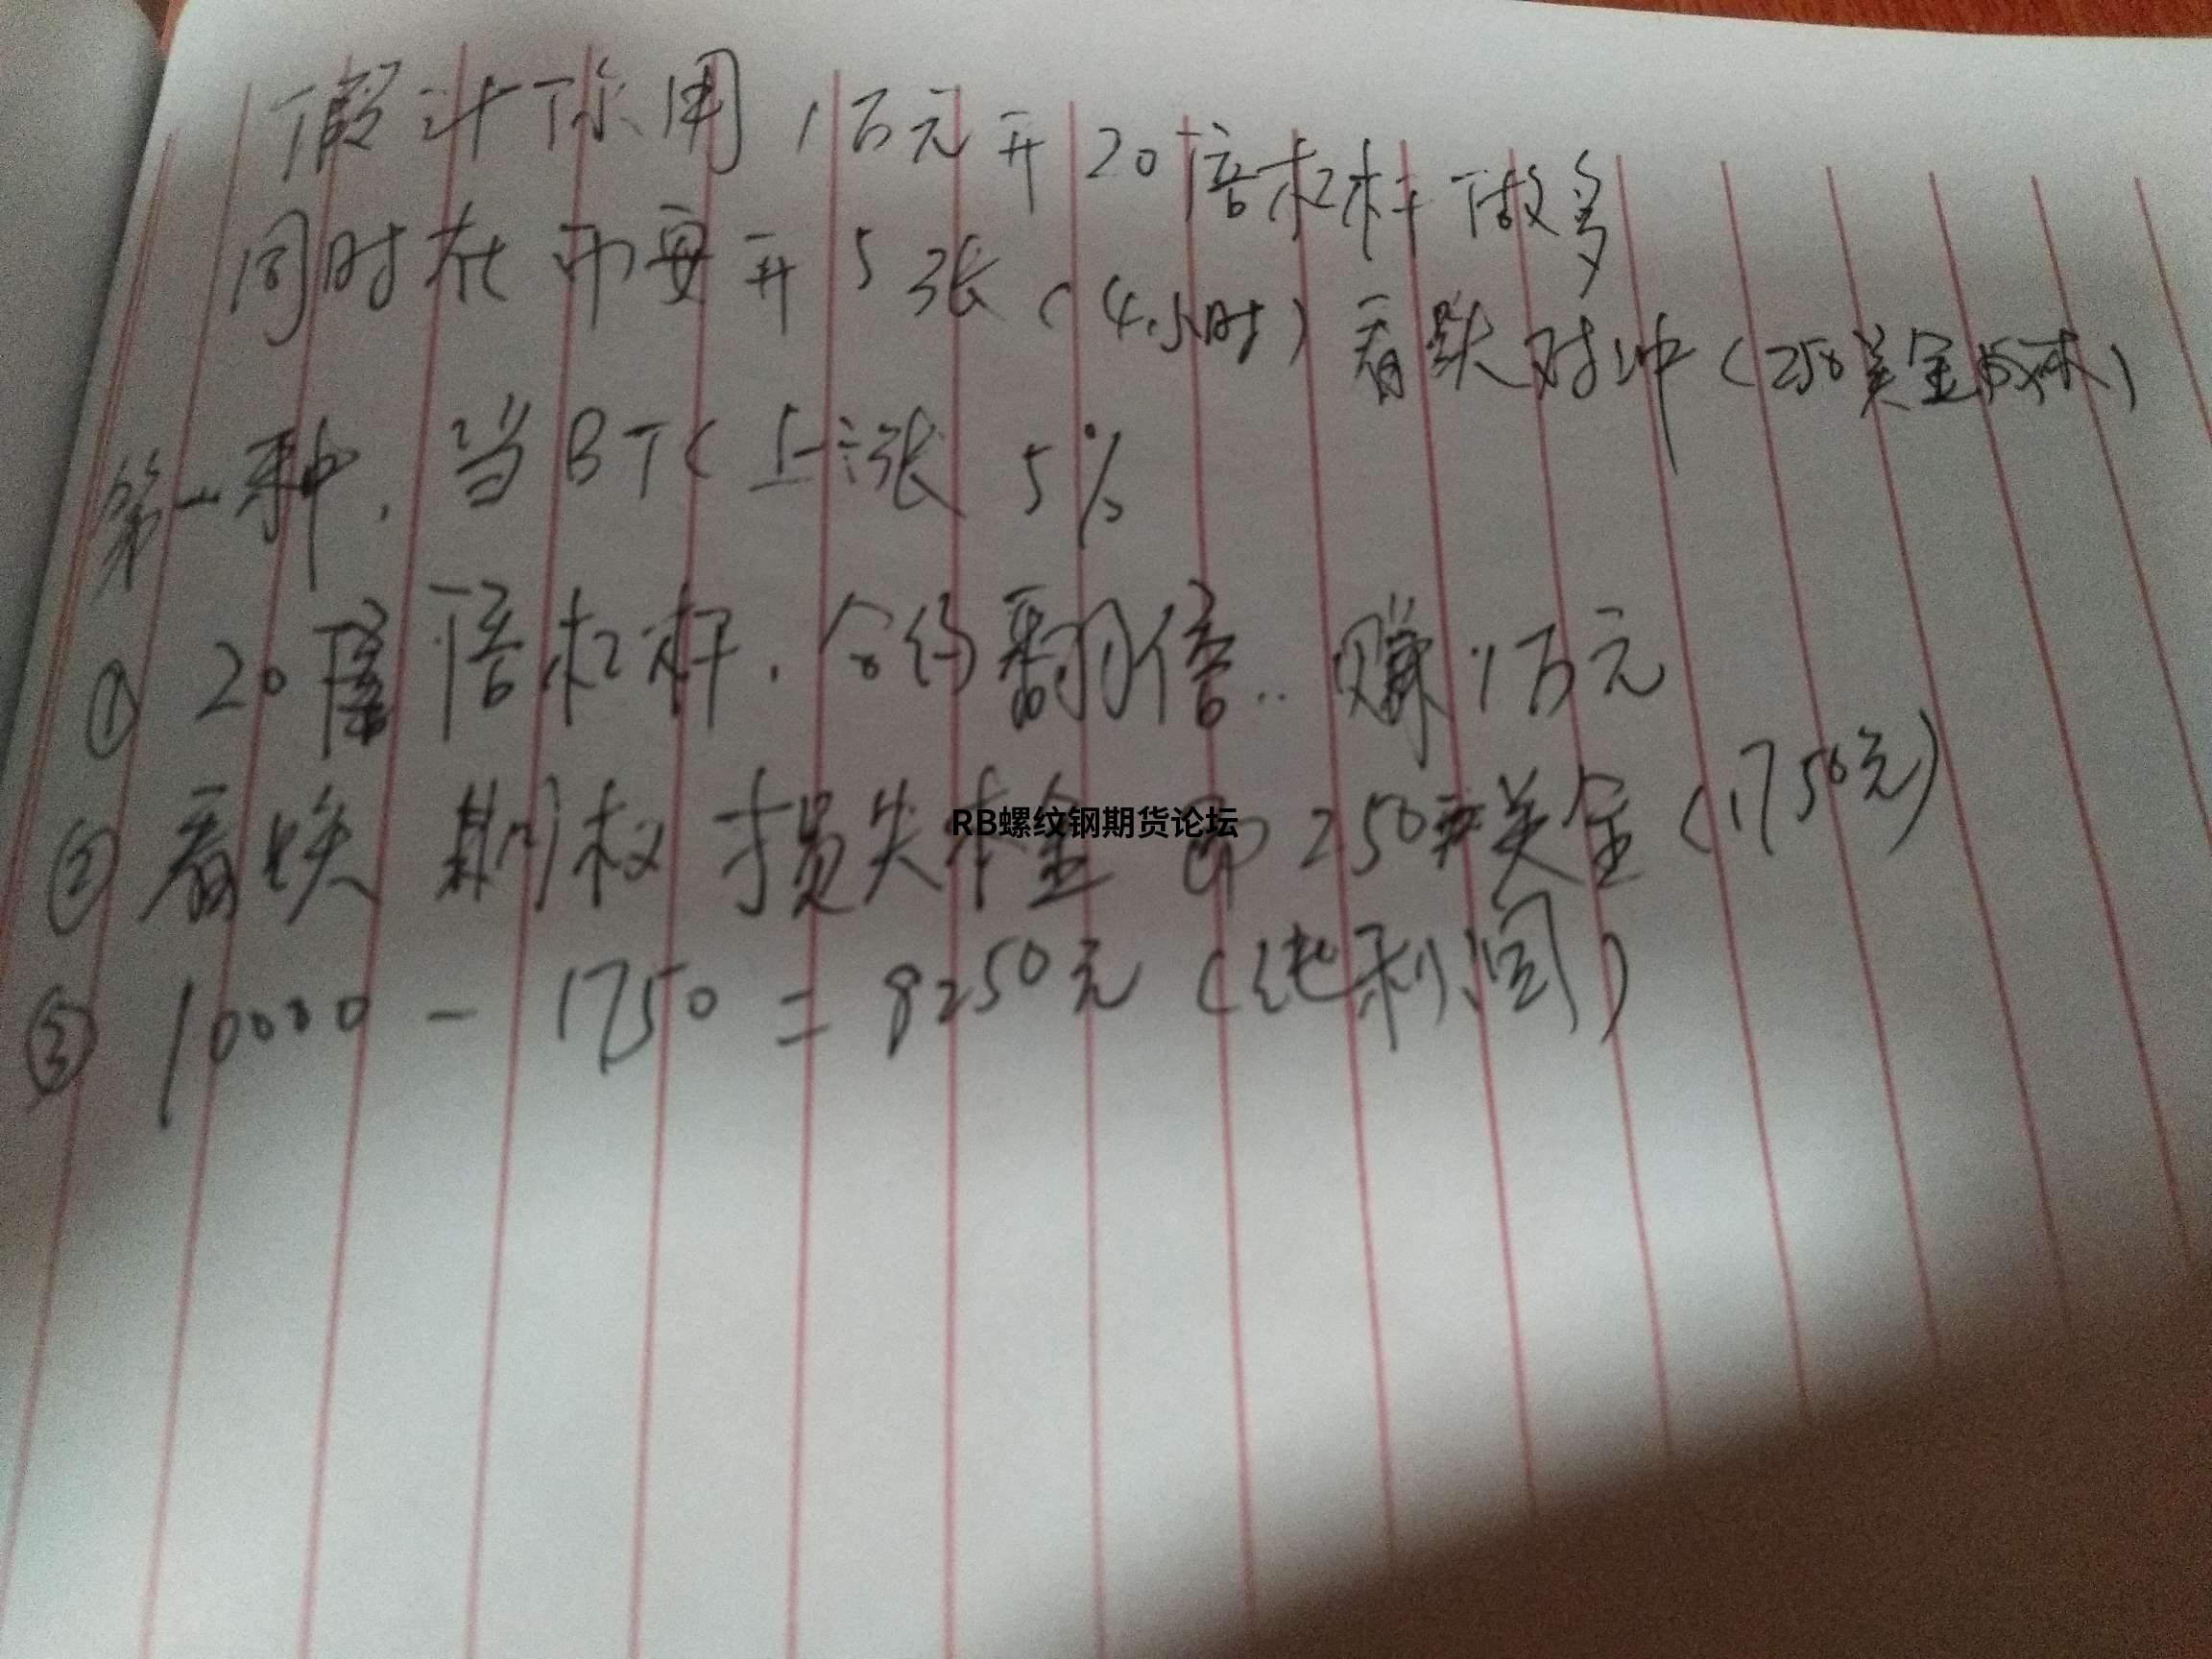 假计你用1万元开20倍杠杆做多
同时在币安开5张(4小时)看跌对冲(250美金成本)
第一种.当BTC上涨5%
① 20倍杠杆.合约翻倍..赚1万元
② 看跌期权损失本金即250美金(1750元)
RB螺纹钢期货论坛
③ 10000-1750=8250元(纯利润)